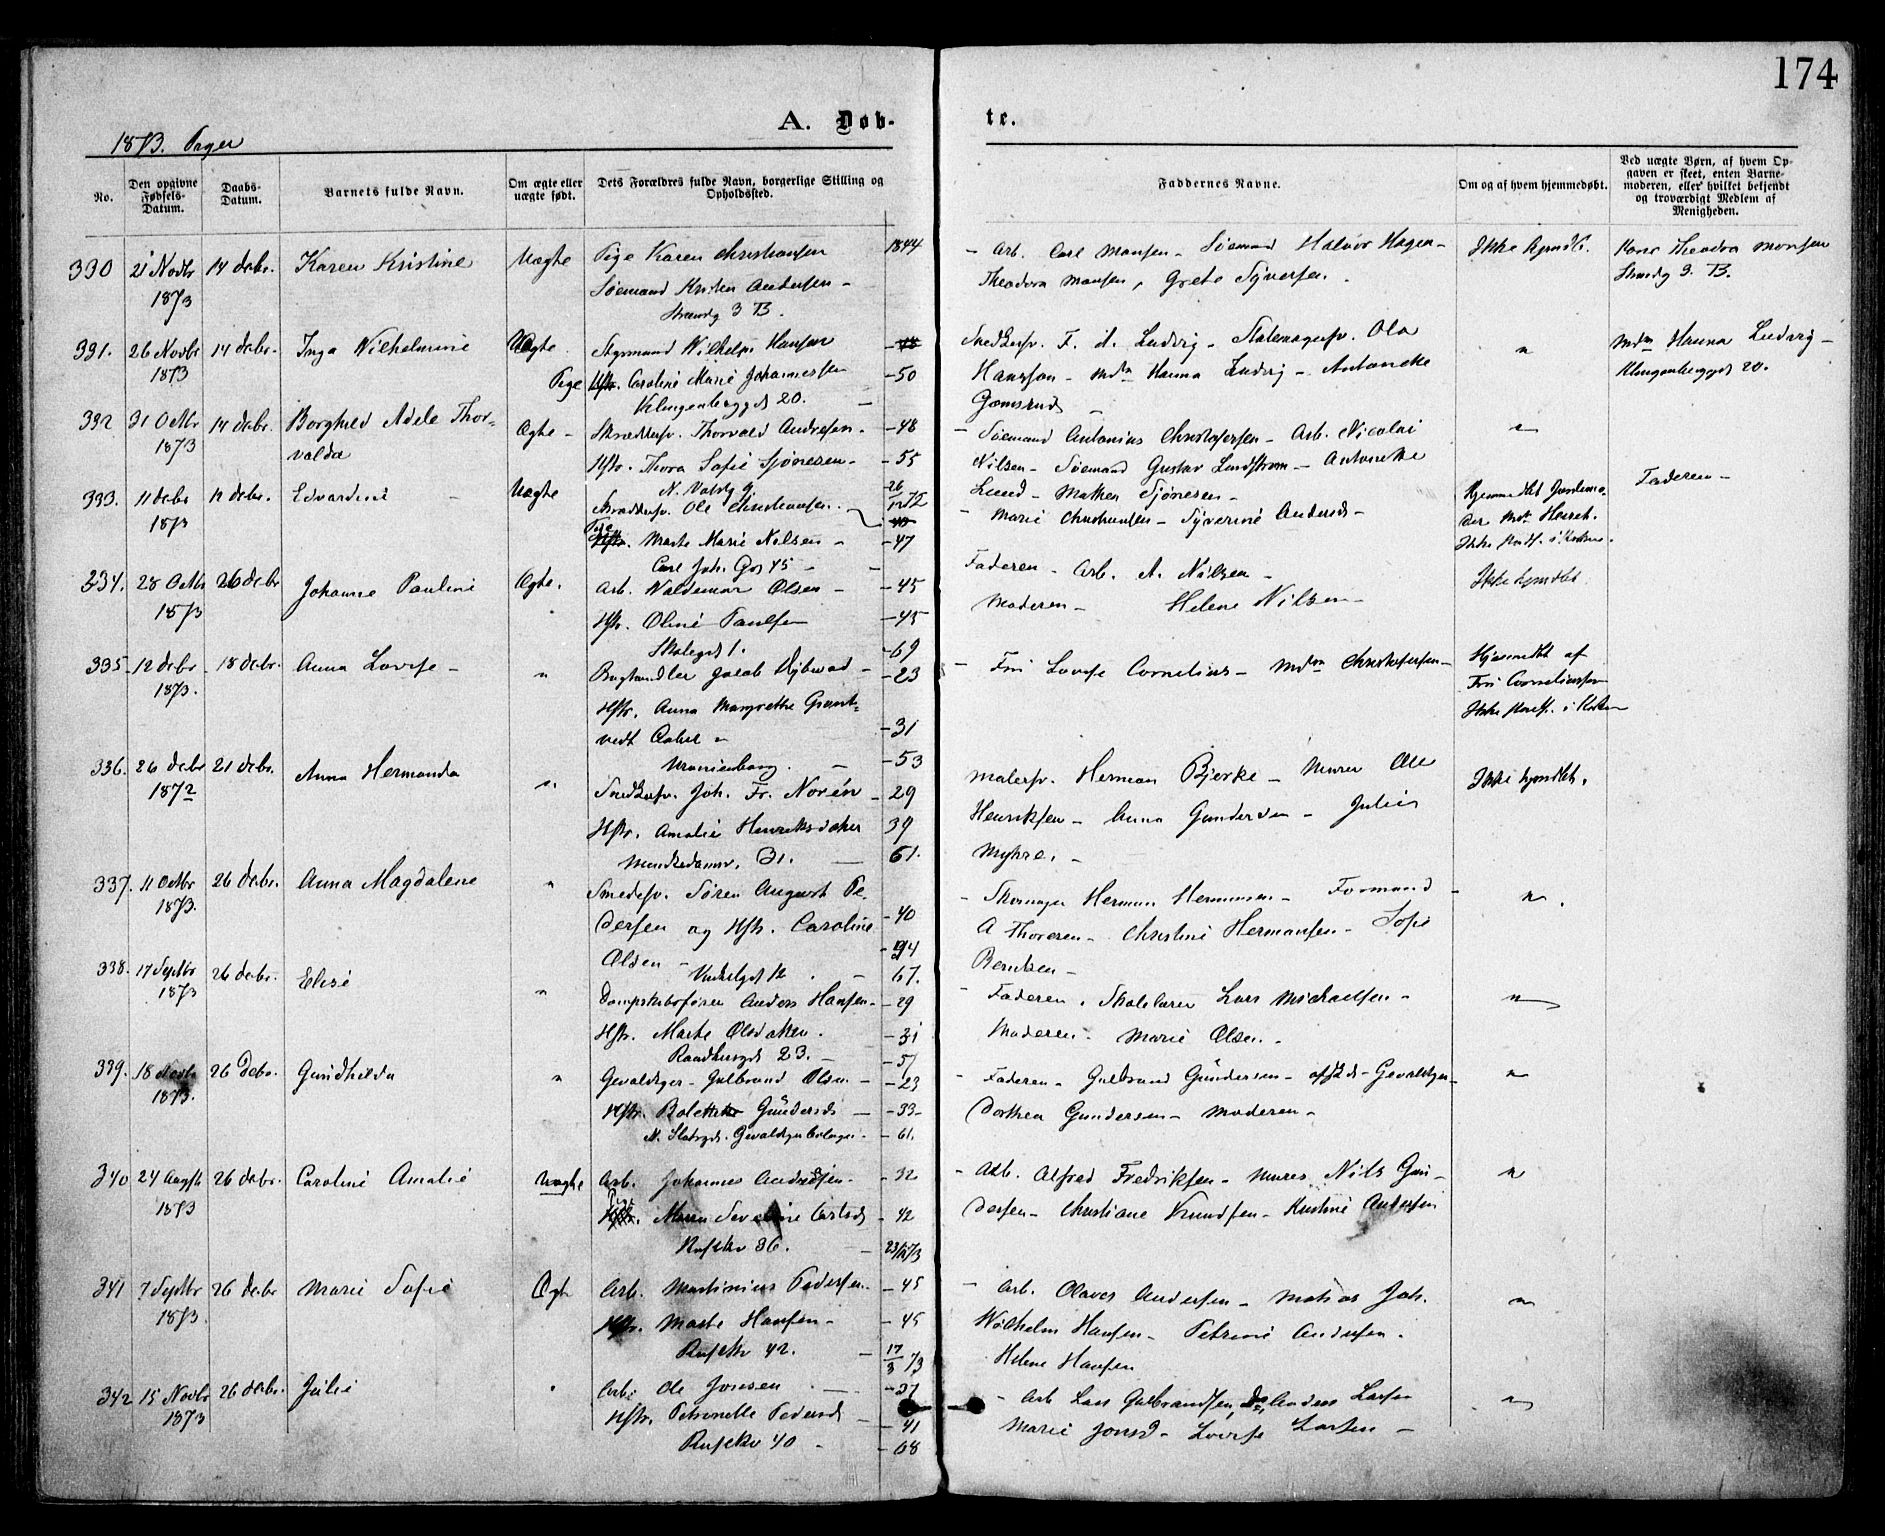 174
A. Døb-
te.
1873. Piger
No.
Den opgivne Fødsels-Datum.
Daabs-Datum.
Barnets fulde Navn.
Om ægte eller uægte født.
Dets Forældres fulde Navn, borgerlige Stilling og Opholdssted.
Faddernes Navne.
Om og af hvem hjemmedøbt.
Ved uægte Børn, af hvem Op-
gaven er skeet, enten Barne-
moderen, eller hvilket bekjendt
og troværdigt Medlem af
Menigheden.
330 21 Novbr 14 debr. Karen Kristine Uægte Pige Karen Christiansen 1844 - Arb. Carl Monsen - Sømand Halvor Hagen - Ikke hjmdbt. Kone Theodra Monsen
1873 Sømand Kristen Andersen - Theodora Monsen, Grete Syversen. Strandg 3. B.
Strandg 3 B.
331. 26 Novbr 14 debr. Inga Wilhelmine Uægte Styrmand Wilhelm Hansen Snedkersv. F. A. Ludvig - Stolemagersv. Ola " Mdm Hanna Ludvig -
1873 Pige Caroline Marie Johannessen - 50 Hansson - Mdm Hanna Ludvig - Antonette Klingenberggd 20.
Klingenberggd 20. Gomsrud -
332 31 Octbr 14 debr. Borghild Adele Thor- Ægte - Skræddersv. Thorvald Andresen - 48 - Sømand Antonius Christofersen - Arb. Nicolai "
1873 valda Hstr. Thora Sofie Sjønesen - 55 Nilsen - Sømand Gustav Lundstrøm - Antonette
N. Voldg 9 26/12 72 Lund - Mathea Sjønesen -
333. 11 debr 12 debr. Edvardine Uægte Skræddersv. Ole Christiansen - Marie Christiansen - Syverine Andersd - Hjemmedbt Jordemo- Faderen -
1873 Pige Marte Marie Nilsen - 47 der
Carl Joh. Gd 45 -
234. 28 Octbr 26 debr Johanne Pauline Ægte. Arb. Waldemar Olsen - 45 Faderen - Arb. A. Nilsen - Ikke hjmdbt
1873 Hstr. Oline Paulsen - 45 Moderen - Helene Nilsen -
Skolegd 1. - 69
335 12 debr 18 debr. Anna Lovise - " Boghandler Jacob Dybwad - 23 - Fru Lovise Cornelius - Mdm Christofersen - Hjemmedbt af
1873. Hstr. Anna Margrethe Grønt- Fru Corneliussen
vedt Aabel - - 31
Uranienborg. - 53
336. 26 debr 21 debr. Anna Hermanda " Snedkersv. Joh. Fr. Norén - 29 Malersv. Herman Bjerke - Murer Ole Ikke hjmdbt.
1872 Hstr. Amalie Henriksdater 39 Henriksen - Anna Gundersen - Julie
Munkedamsv. 31. - 61. Myhre. -
337. 11 Octbr 26 debr. Anna Magdalene " Smedesv. Søren August Pe- - Skomager Herman Hermansen - Formand - "
1873. dersen og Hstr. Caroline - 40 A Thoresen - Christine Hermansen - Sofie
Olsen - Vinkelgd 12. - 67. Berntsen -
338. 17 Septbr 26 debr. Elise " Dampskibsfører Anders Hansen - 29 - Faderen. Skolelærer Lars Michaelsen - "
1873 Hstr. Marte Olsdater. - 31 Moderen - Marie Olsen -
Raadhusgd 23. - 57
339. 18 Novbr 26 Debr. Gundhilda " Gevaldiger - Gulbrand Olsen - 23 - Faderen - Gulbrand Gundersen - Gevaldiger - "
1873. Hstr. Gundersd - 33 - Dorthea Gundersen - Moderen -
N. Slotsgd. - 61.
340 24 Augst 26 debr. Caroline Amalie Uægte Arb. Johannes Andersen - 32 - Arb. Alfred Fredriksen - Murer Nils Gun- "
1873 Pige Maren Severine Carlsd - 42 dersen - Christiane Knudsen - Kristine Andersen
Rusekv 36. - 23/11 73
341 7 Septbr 26 debr Marie Sofie Ægte Arb. Martinius Pedersen - 45 - Arb. Olaves Andersen - Matias Joh. "
1873. Hstr. Marte Hansen - - 45 Wilhelm Hansen - Petrine Andersen.
Rusekv 42. - 17/3 73 Helene Hansen
342 15 Novbr 26 debr. Julie " Arb. Ole Jonsen - 37 - Arb Lars Gulbrandsen, Do Anders Larsen "
1873 Hstr. Petronelle Pedersd - 41 Marie Jonsd - Lovise Larsen -
Rusekv 40 - - 68